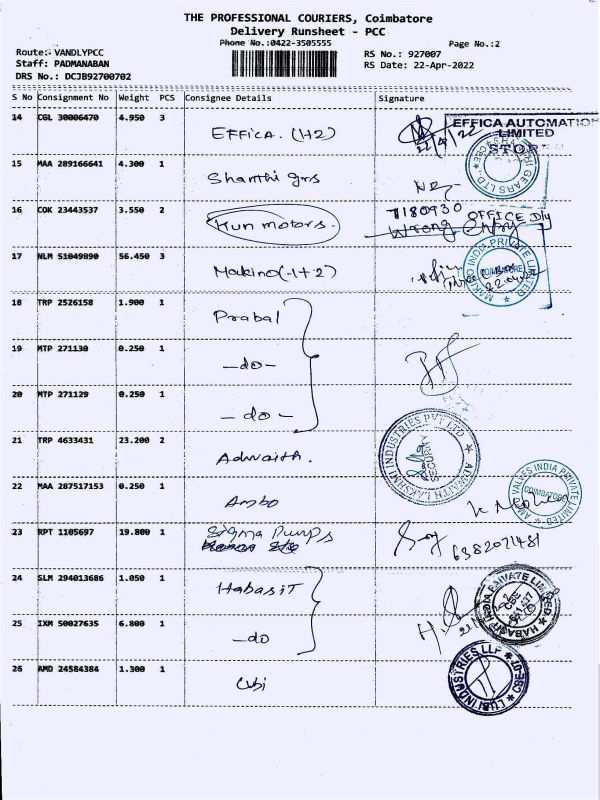 THE PROFESSIONAL COURIERS, Coimbatore
Delivery Runsheet - PCC
Phone No.:0422-3505555
Page No.:2
Route: VANDLYPCC
RS No.: 927007
Staff: PADMANABAN
RS Date: 22-Apr-2022
DRS No.: DCJB92700702
S No Consignment No Weight PCS Consignee Details Signature
14 CGL 30006470 4.950 3 EFFICA. (1+2) 22/4/22
EFFICA AUTOMATION
LIMITED
STOP
15 MAA 289166641 4.300 1 Shanthi grs
SHANTHI GEARS LTD., CBE
16 COK 23443537 3.550 2 Kun motors.
7180930 OFFICE Dly
Wrong Entry
17 NLM 51049890 56.450 3 Makino (-1+2)
MAKINO INDIA PRIVATE LIMITED
COIMBATORE
18 TRP 2526158 1.900 1 Prabal
19 MTP 271130 0.250 1 -do-
20 MTP 271129 0.250 1 -do-
21 TRP 4633431 23.200 2 Adwaith.
ADWAITH LAKSHMI INDUSTRIES PVT LTD
SECURITY
22 MAA 287517153 0.250 1 Ambo
AMBO VALVES INDIA PRIVATE LIMITED
COIMBATORE
23 RPT 1105697 19.800 1 Sigma Pumps
6382071481
24 SLM 294013686 1.050 1 HabasiT
HABASIT INDIA PRIVATE LIMITED
CBE
25 IXM 50027635 6.800 1 -do
26 AMD 24584384 1.300 1 Lubi
LUBI INDUSTRIES LLP
CBE-07